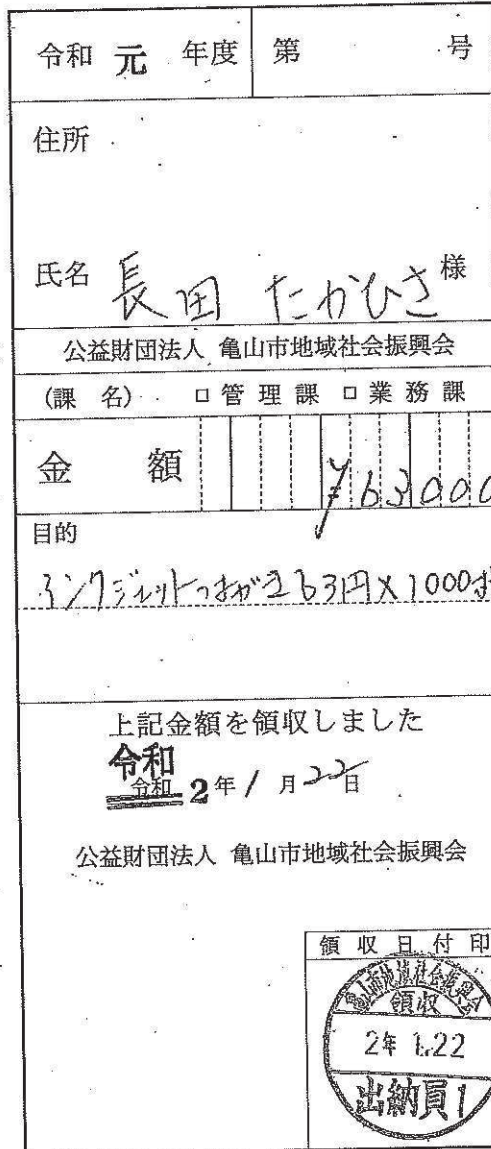 令和 元 年度 第 号
住所
氏名 長田 たかひさ 様
公益財団法人 亀山市地域社会振興会
(課 名) □ 管 理 課 □ 業 務 課
金 額 ¥63000
目的
インクジェットはがき 63円×1000
上記金額を領収しました
令和
令和 2年 1月 22日
公益財団法人 亀山市地域社会振興会
領 収 日 付 印
亀山市地域社会振興会
領収
2年 1.22
出納員1